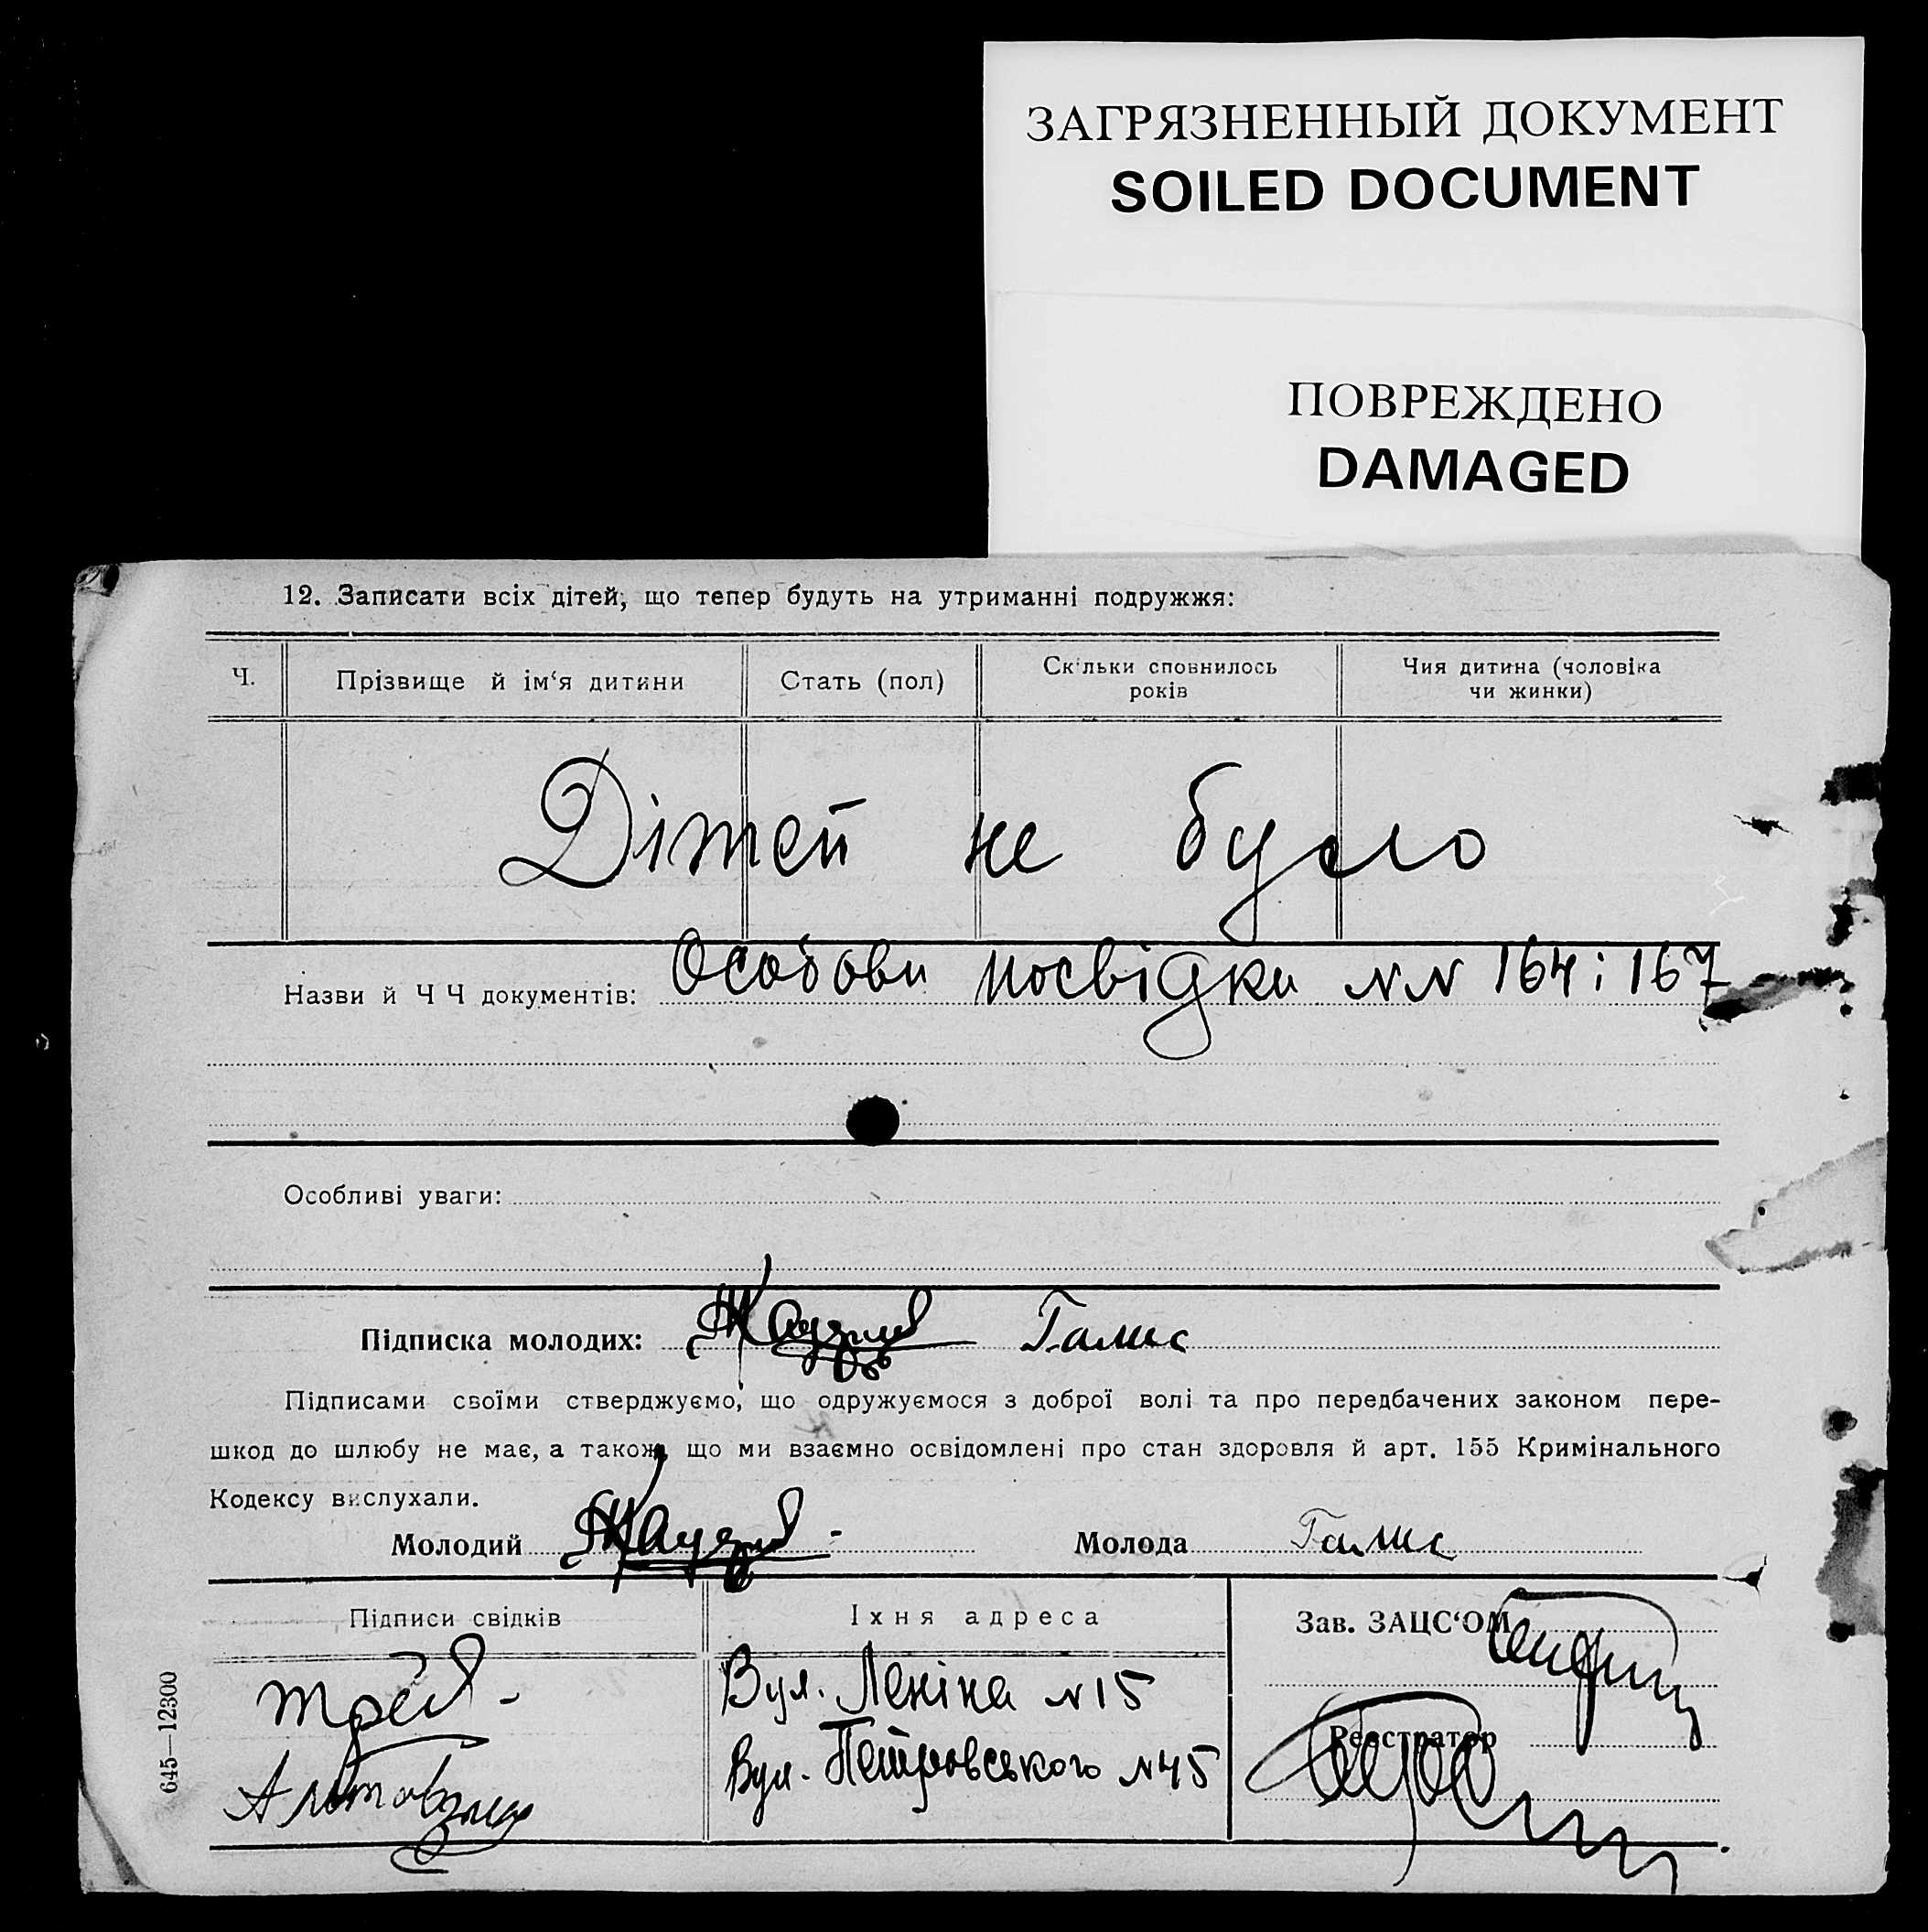 ЗАГРЯЗНЕННЫЙ ДОКУМЕНТ
SOILED DOCUMENT
ПОВРЕЖДЕНО
DAMAGED
12. Записати всіх дітей, що тепер будуть на утриманні подружжя:
Ч. Прізвище й ім‘я дитини Стать (пол) Скільки сповнилось років Чия дитина (чоловіка чи жинки)
Дітей не було
Назви й Ч Ч документів: Особови посвідки NN 164 і 167
Особливі уваги:
Підписка молодих: Галис
Підписами своїми стверджуємо, що одружуємося з доброї волі та про передбачених законом пере-
шкод до шлюбу не має, а також, що ми взаємно освідомлені про стан здоровля й арт. 155 Кримінального
Кодексу вислухали.
Молодий Молода Галис
Підписи свідків Їхня адреса Зав. ЗАЦС‘ОМ
Вул. Леніна N 15
Реєстратор
Вул. Петровського N 45
645—12300